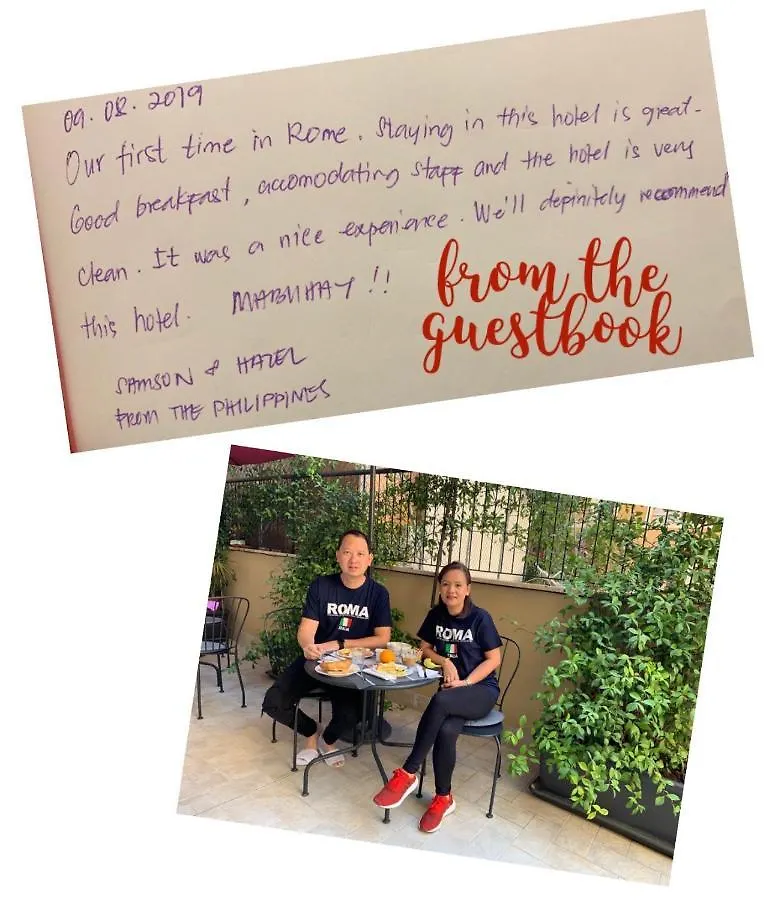 09.08.2019
Our first time in Rome. Staying in this hotel is great.
Good breakfast, accomodating staff and the hotel is very
clean. It was a nice experience. We'll definitely recommend
this hotel. MABUHAY !!
SAMSON & HAZEL
FROM THE PHILIPPINES
from the
guestbook
ROMA
ITALIA
ROMA
ITALIA